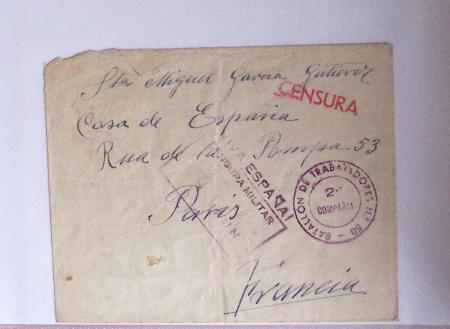 Sta Miguel Garcia Gutierez
CENSURA
Casa de España
Rua de la Pompa 53
Paris
VIVA ESPAÑA!
CENSURA MILITAR
BATALLÓN DE TRABAJADORES Nº 50
2ª
COMPAÑIA
Francia